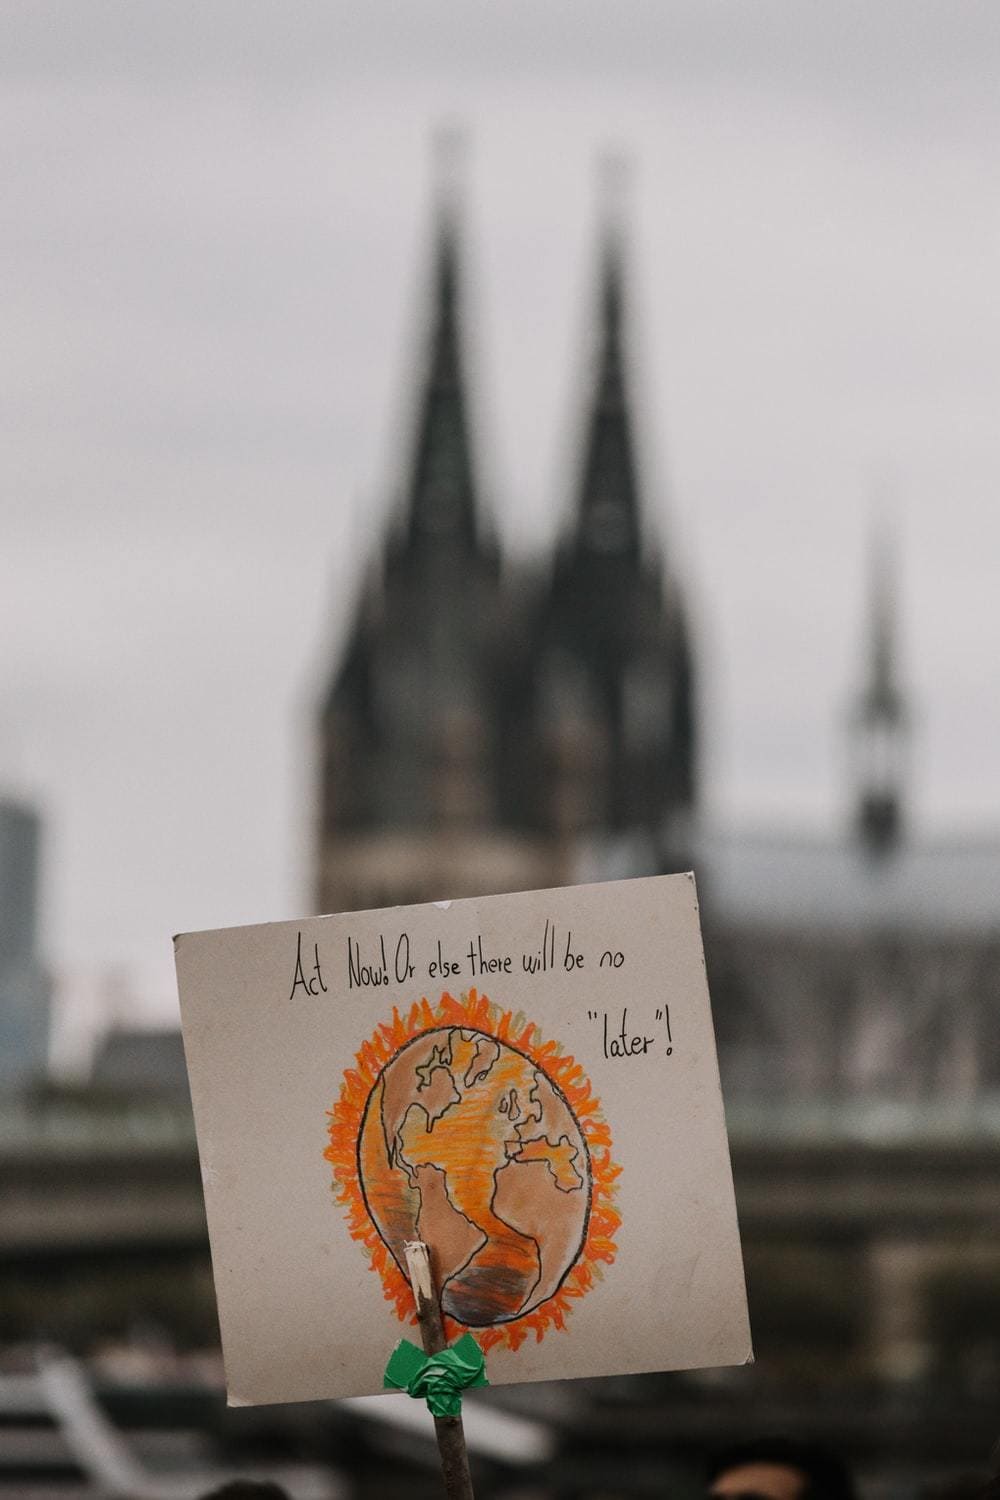 Act Now! Or else there will be no
"later"!